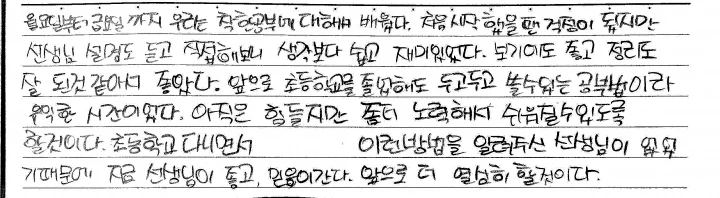 월요일부터 금요일 까지 우리는 착한공부에 대해서 배웠다. 처음 시작 했을 땐 걱정이 됬지만
선생님 설명도 듣고 직접해보니 생각보다 쉽고 재미있었다. 보기에도 좋고 정리도
잘 된것 같아서 좋았다. 앞으로 초등학교를 졸업해도 두고두고 쓸수있는 공부법이라
유익한 시간이었다. 아직은 힘들지만 좀더 노력해서 쉬워질수있도록
할것이다. 초등학교 다니면서 이런방법을 알려주신 선생님이 없었
기때문에 지금 선생님이 좋고, 믿음이간다. 앞으로 더 열심히 할것이다.